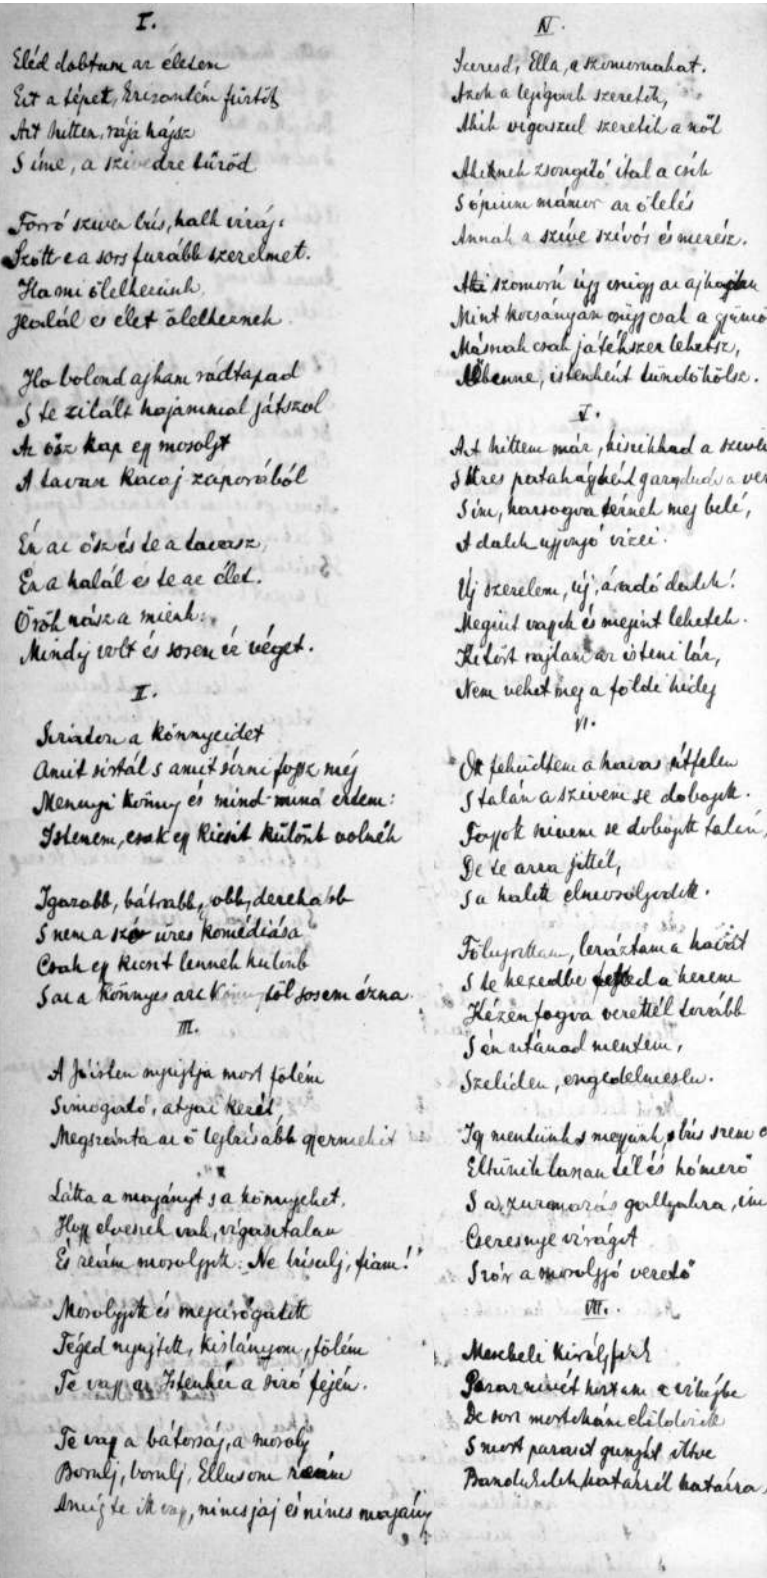 I.
Eléd dobtam az életem
Ezt a tépett, krizantém fürtöt
Azt hittem, rája hájsz
S íme, a szivedre tűződ
Forró szivem bús, halk virág
Szőtt-e a sors furább szerelmet.
Ha mi ölelkezünk
Halál és élet ölelkeznek
Ha bolond ajkam rádtapad
S te zilált hajammal játszol
Az ősz kap egy mosolyt
A tavasz kacaj-záporából
Én az ősz és te a tavasz,
Én a halál és te az élet.
Örök nász a mienk:
Mindíg volt és sosem ér véget.
II.
Siratom a könnyeidet
Amit sírtál s amit sírni fogsz még
Mennyi könny és mind-mind értem:
Istenem, csak egy kicsit különb volnék
Igazabb, bátrabb, jobb, derekabb
S nem a szép üres komédiása
Csak egy kicsit lennék különb
S az a könnyes arc től sosem ázna.
III.
A Jóisten nyujtja most fölém
Simogató, atyai kezét,
Megszánta az ő legbúsabb gyermekét
Látta a magányt s a könnyeket,
Hogy elveszek vak, vígasztalan
És reám mosolygott: Ne búsulj, fiam!
Mosolygott és megcirógatott
Téged nyujtott, kislányom, fölém
Te vagy az Istenkéz a síró fején.
Te vagy a bátorság, a mosoly
Borulj, borulj, Ellusom reám
Amíg te itt vagy, nincs jaj és nincs magány
IV.
Szeresd, Ella, a szomorúakat.
Azok a legigazabb szeretők,
Akik vígaszul szeretik a nőt
Akiknek zsongító ital a csók
S ópium mámor az ölelés
Annak a szíve szívós és merész.
Aki szomorú úgy csügg az ajkadon
Mint kocsányán csügg csak a gyümö
Másnak csak játékszer lehetsz,
Őbenne, istenként tündökölsz.
V.
Azt hittem már, kiszikkad a szivem
S üres patakágyként garádul a ver
S ím, harsogva térnek meg belé,
A dalok ujjongó vizei.
Új szerelem, új, áradó dalok!
Megint vagyok és megint lehetek.
Kitört rajtam az isteni láz,
Nem vehet meg a földi hideg
VI.
Ott feküdtem a havas útfelen
S talán a szivem se dobogott.
Fagyott szivem se dobogott talán,
De te arra jöttél,
S a halott elmosolyodott.
Fölugrottam, leráztam a havát
S te kezedbe tetted a kezem
Kézen fogva vezettél tovább
S én utánad mentem,
Szelíden, engedelmesen.
Igy mentünk s megyünk, s bús szeme
Eltünik lassan tél és hómező
S a zuzmarás gallyakra, ím
Cseresznye virágot
Szór a mosolygó verető
VII.
Mesebeli királyfinak
Pazar mívét hoztam e világba
De sors mostohám elüldözött
S most paraszt gunyát öltve
Bandukolok határról határra.